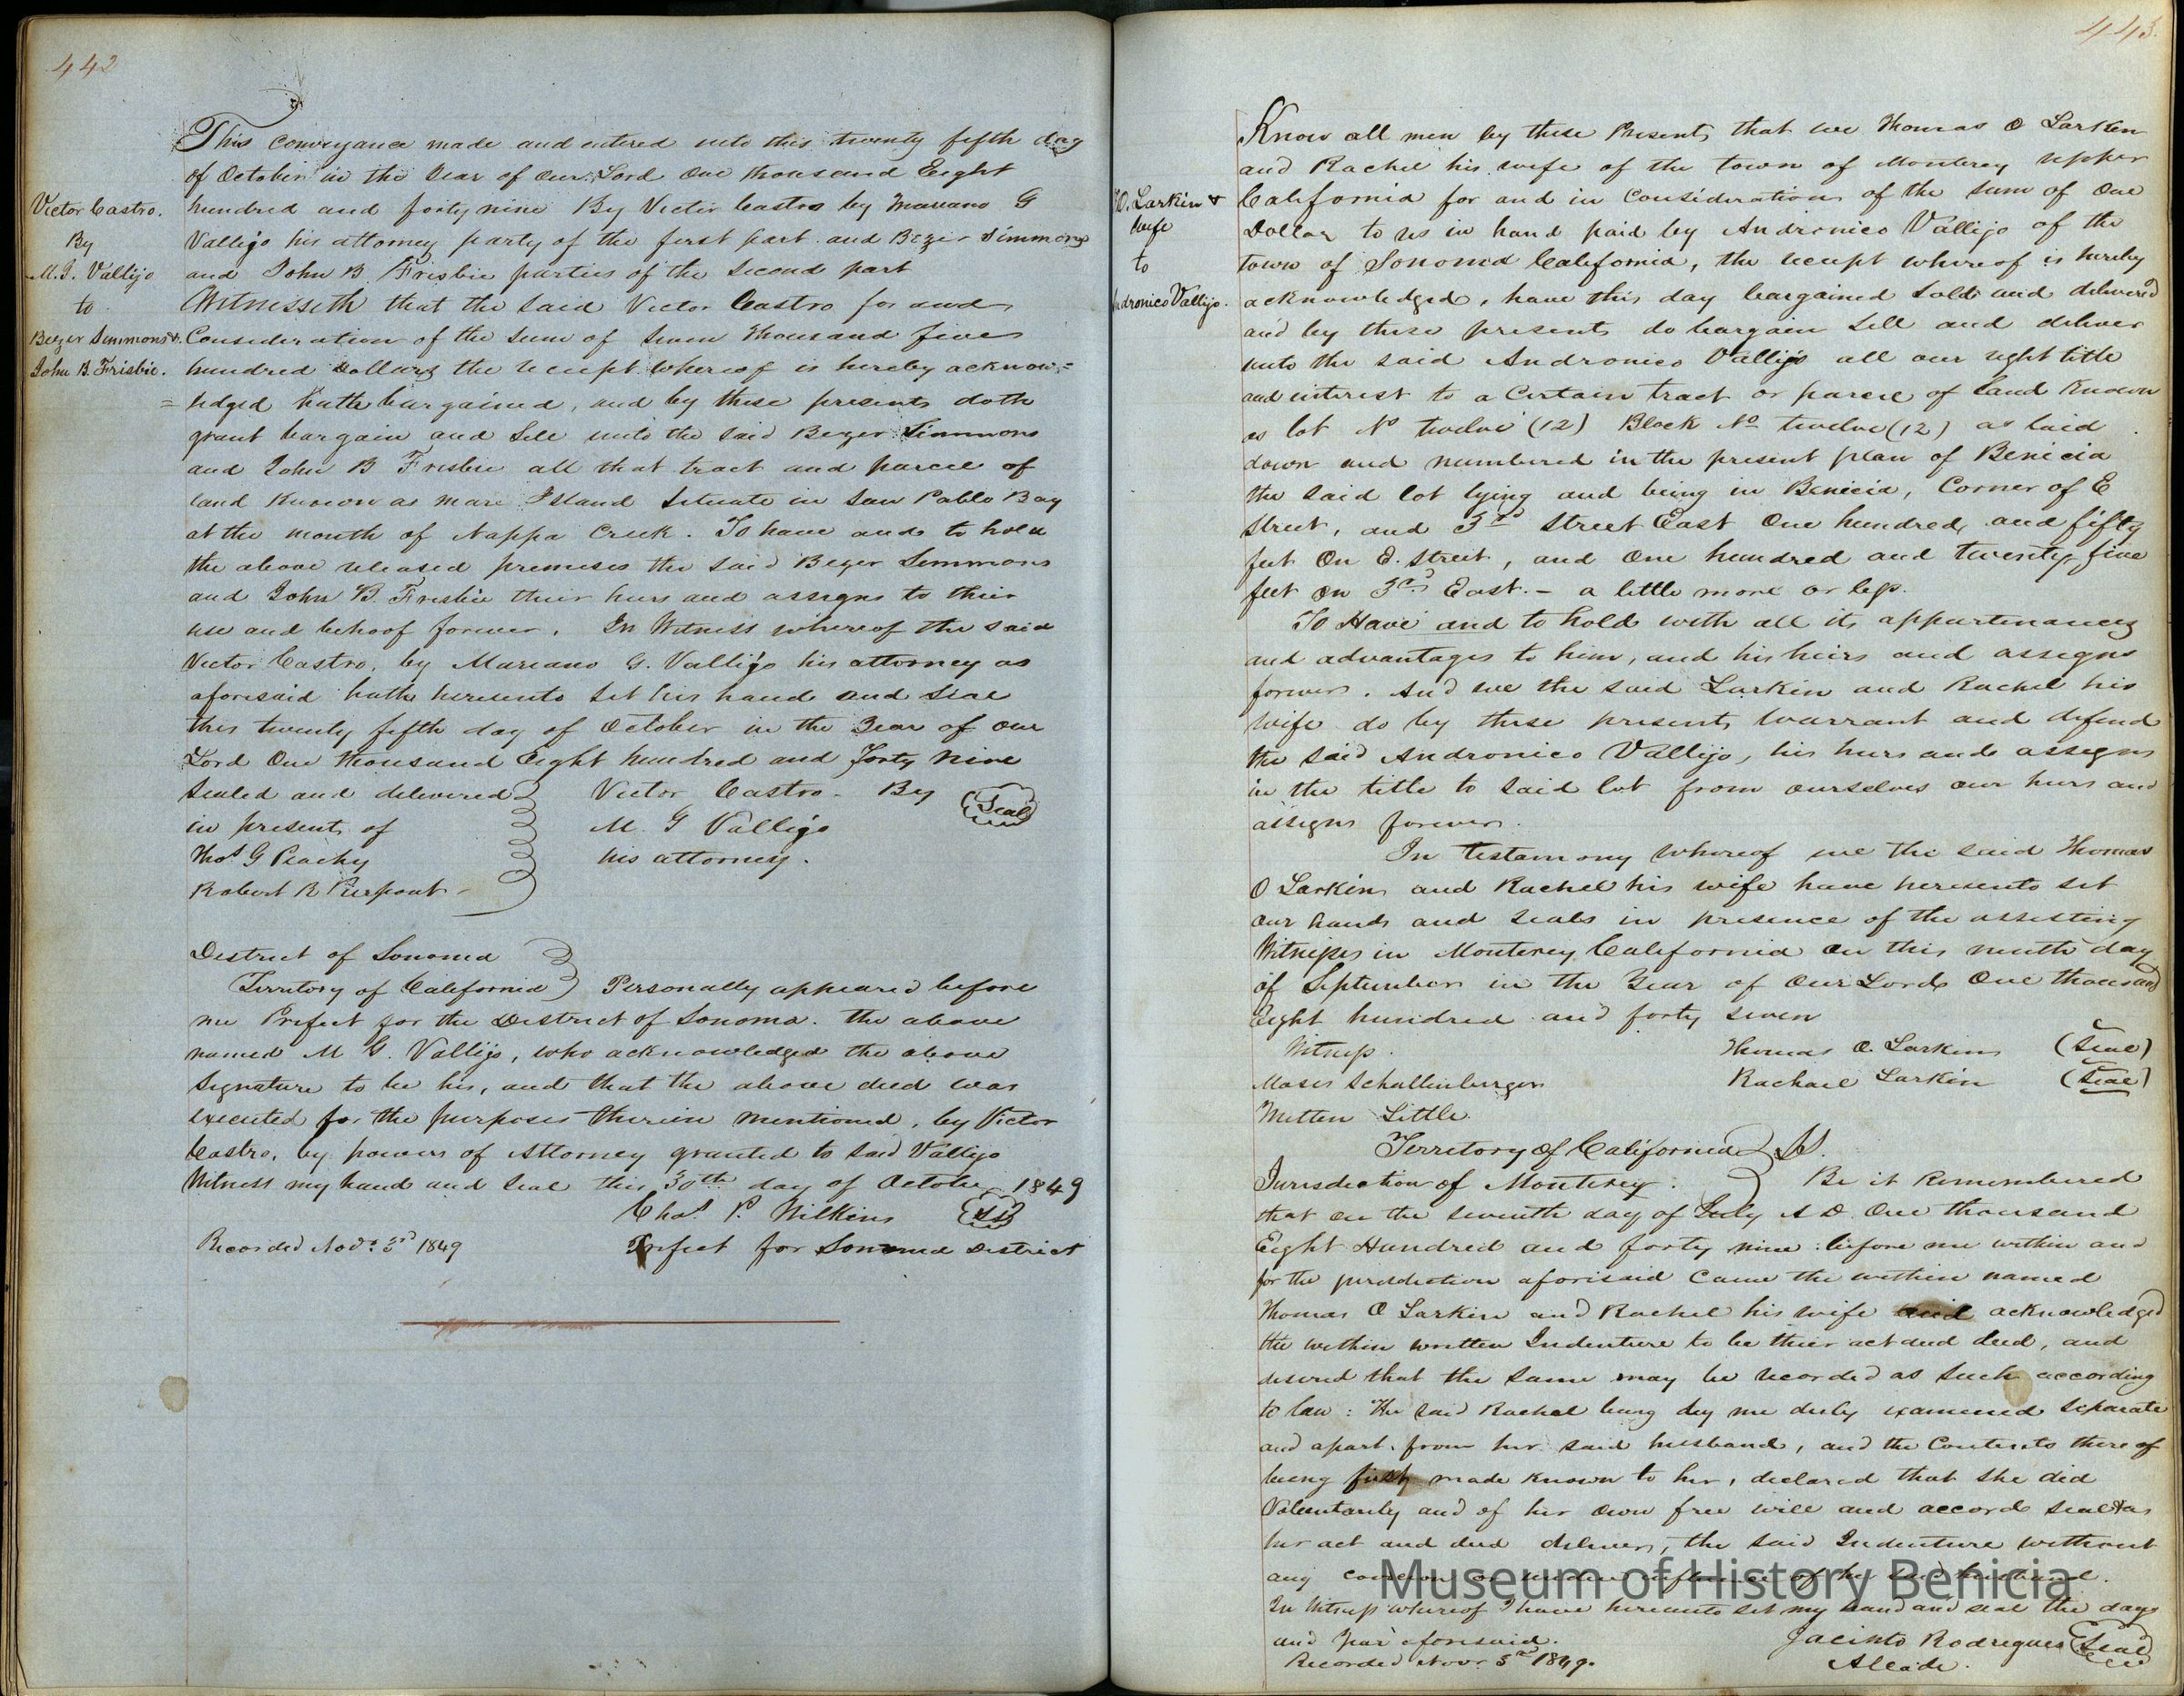 442
This conveyance made and entered into this twenty fifth day
of October in the Year of our Lord One thousand Eight
hundred and forty nine By Victor Castro by Mariano G
Vallijo his attorney party of the first part and Bezer Simmons
and John B. Frisbie parties of the second part
Witnesseth that the said Victor Castro for and
Consideration of the sum of Seven Thousand five
hundred Dollars the receipt whereof is hereby acknow=
=ledged hath bargained, and by these presents doth
grant bargain and Sell unto the said Bezer Simmons
and John B Frisbie all that tract and parcel of
land Known as mare Island Situate in San Pablo Bay
at the mouth of Nappa Creek. To have and to hold
the above released premises the said Bezer Simmons
and John B. Frisbie their heirs and assigns to their
use and behoof forever. In Witness whereof the said
Victor Castro, by Mariano G. Vallijo his attorney as
aforesaid hath hereunto Set his hand and Seal
this twenty fifth day of October in the Year of our
Lord One thousand Eight hundred and forty Nine
Sealed and delivered Victor Castro. By (Seal)
in presents of M. G Vallijo
Thos G Peachy his attorney.
Robert R Pierpont
Victor Castro.
By
M. G. Vallijo
to
Bezer Simmons &
John B. Frisbie.
District of Sonoma
Territory of California) Personally appeared before
me Prefect for the District of Sonoma. the above
named M G. Vallijo, who acknowledged the above
Signature to be his, and that the above deed was
executed for the purposes therein mentioned, by Victor
Castro, by powers of Attorney granted to said Vallijo
Witness my hand and Seal this 30th day of October 1849
Chas. P. Wilkins (LS)
Recorded Novr 3d 1849 Prefect for Sonoma District
443.
Know all men by these Presents that we Thomas O Larkin
and Rachel his wife of the town of Monterey upper
California for and in Consideration of the sum of One
Dollar to us in hand paid by Andronico Vallijo of the
town of Sonoma California, the receipt whereof is hereby
acknowledged, have this day bargained Sold and delivered
and by these presents do bargain Sell and deliver
unto the said Andronico Vallijo all our right title
and interest to a Certain tract or parcel of Land Known
as lot No twelve (12) Block No twelve (12) as laid
down and numbered in the present plan of Benicia
the said lot lying and being in Benicia, Corner of E
Street, and 3rd Street East One hundred and fifty
feet On E. Street, and One hundred and twenty five
feet on 3rd East. - a little more or less.
To Have and to hold with all its appurtenances
and advantages to him, and his heirs and assigns
forever. And we the said Larkin and Rachel his
wife do by these presents warrant and defend
the said Andronico Vallijo, his heirs and assigns
in the title to said lot from ourselves our heirs and
assigns forever.
In testamony whereof we the said Thomas
O Larkin and Rachel his wife have hereunto set
our hands and seals in presence of the assisting
Witnesses in Monterey California on this ninth day
of September in the Year of Our Lord One thousand
Eight hundred and forty seven
Witness. Thomas O. Larkin (Seal)
Moses Schallenberger Rachael Larkin (Seal)
Milton Little
O. Larkin &
wife
to
Andronico Vallijo.
Territory of California SS.
Jurisdiction of Monterey. Be it Remembered
that on the seventh day of July A D. One thousand
Eight Hundred and forty nine: before me within and
for the jurisdiction aforesaid Came the within named
Thomas O Larkin and Rachel his wife and acknowledged
the within written Indenture to be their act and deed, and
desired that the same may be recorded as such according
to law: The said Rachel being by me duly examined Separate
and apart. from her said husband, and the Contents thereof
being first made Known to her, declared that she did
Voluntarily and of her own free will and accord seal & as
her act and deed deliver, the said Indenture without
any coercion or undue influence of her said husband.
In Witness whereof I have hereunto set my hand and seal the day
and Year aforesaid. Jacinto Rodrigues (Seal)
Recorded Novr 3rd 1849. Alcade.
Museum of History Benicia